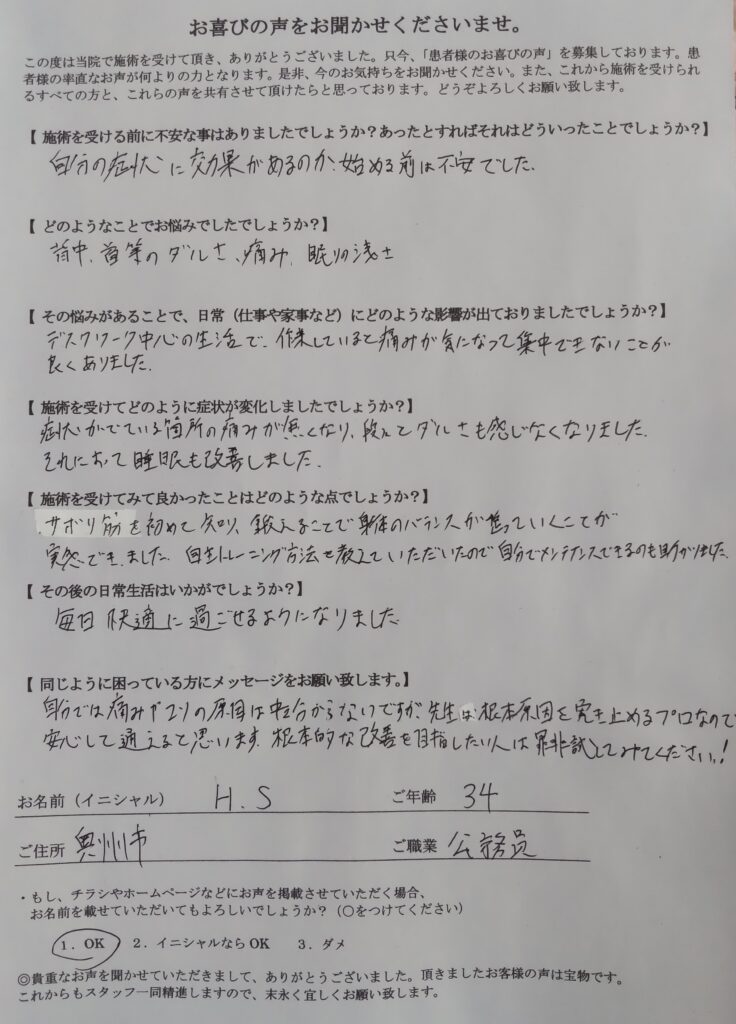 お喜びの声をお聞かせくださいませ。
この度は当院で施術を受けて頂き、ありがとうございました。只今、「患者様のお喜びの声」を募集しております。患
者様の率直なお声が何よりの力となります。是非、今のお気持ちをお聞かせください。また、これから施術を受けられ
るすべての方と、これらの声を共有させて頂けたらと思っております。どうぞよろしくお願い致します。
【 施術を受ける前に不安な事はありましたでしょうか？あったとすればそれはどういったことでしょうか？】
自分の症状に効果があるのか、始める前は不安でした。
【 どのようなことでお悩みでしたでしょうか？】
背中、首等のダルさ、痛み、眠りの浅さ
【 その悩みがあることで、日常（仕事や家事など）にどのような影響が出ておりましたでしょうか？】
デスクワーク中心の生活で、作業していると痛みが気になって集中できないことが
良くありました。
【 施術を受けてどのように症状が変化しましたでしょうか？】
症状がでている箇所の痛みが無くなり、段々とダルさも感じなくなりました。
それによって睡眠も改善しました。
【 施術を受けてみて良かったことはどのような点でしょうか？】
サボり筋を初めて知り、鍛えることで身体のバランスが整っていくことが
実感できました。自主トレーニング方法も教えていただいたので自分でメンテナンスできるのも助かりました。
【 その後の日常生活はいかがでしょうか？】
毎日快適に過ごせるようになりました。
【 同じように困っている方にメッセージをお願い致します。】
自分では痛みやコリの原因は中々分からないですが、先生は根本原因を突き止めるプロなので
安心して通えると思います。根本的な改善を目指したい人は是非試してみてください！
お名前（イニシャル） H.S ご年齢 34
ご住所 奥州市 ご職業 公務員
・もし、チラシやホームページなどにお声を掲載させていただく場合、
お名前を載せていただいてもよろしいでしょうか？（○をつけてください）
1．OK 2．イニシャルなら OK 3．ダメ
◎貴重なお声を聞かせていただきまして、ありがとうございました。頂きましたお客様の声は宝物です。
これからもスタッフ一同精進しますので、末永く宜しくお願い致します。